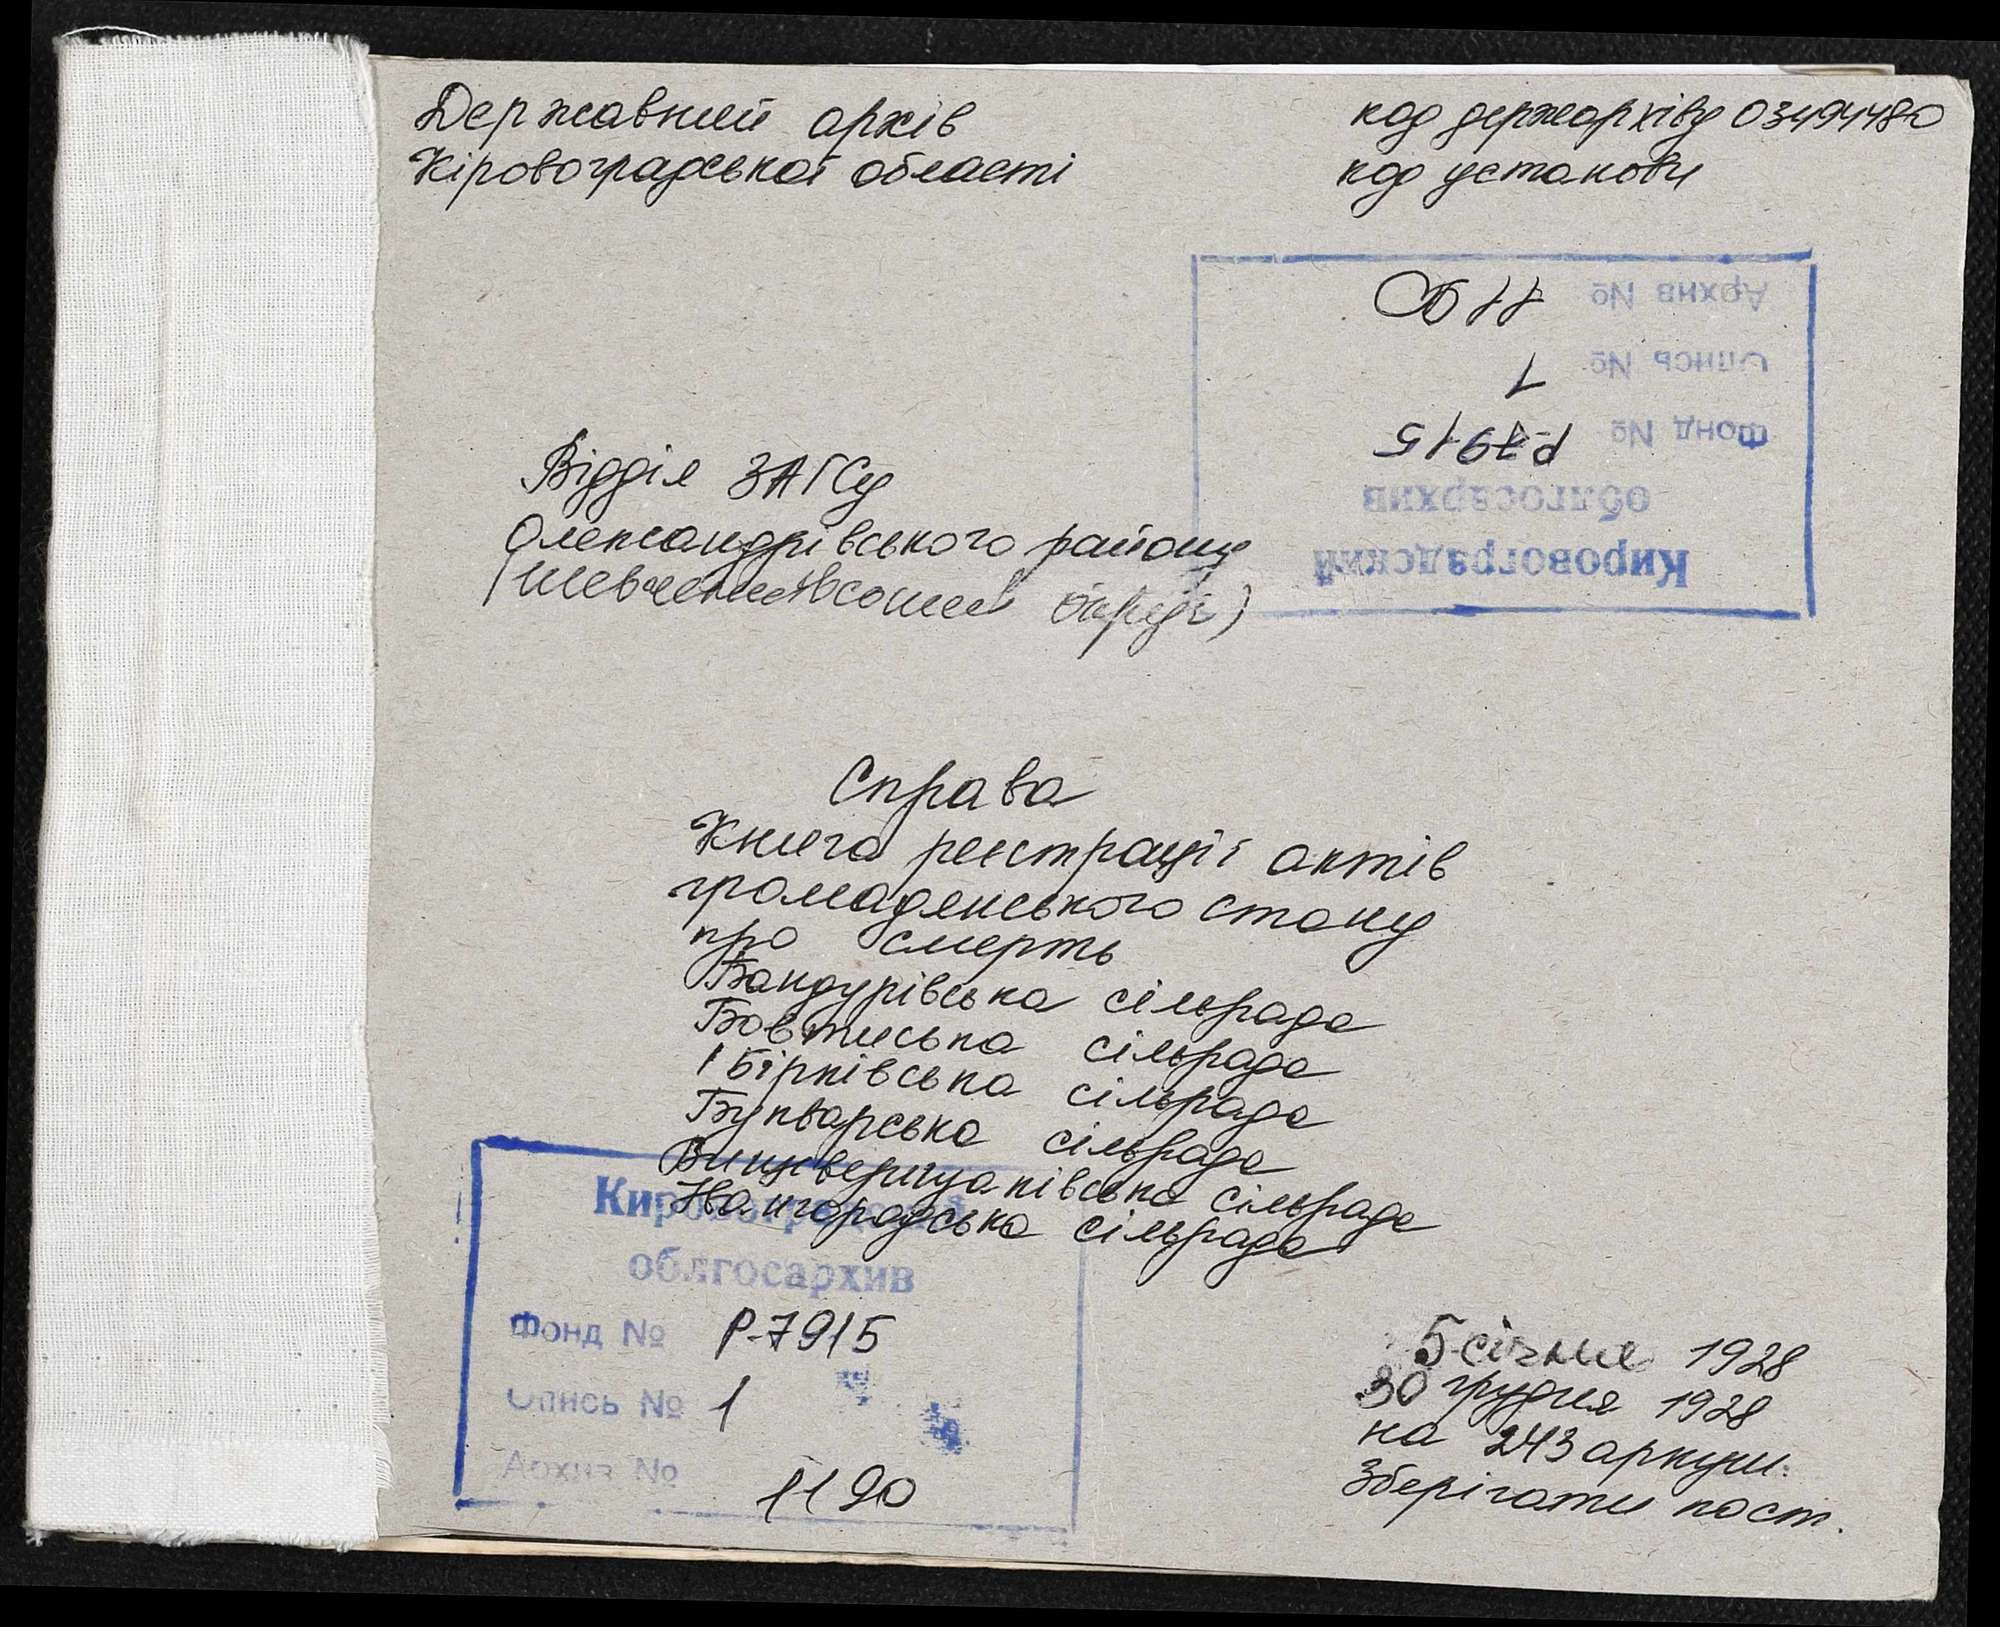 Державний архів
Кіровоградської області
код держархіву 03494480
код установи
Кировоградский
облгосархив
Фонд № Р-7915
Опись № 1
Архив № 1190
Відділ ЗАГСу
Олександрівського району
(Шевченківський округ)
Справа
Книга реєстрації актів
громадянського стану
про смерть
Бандурівська сільрада
Бовтиська сільрада
Бірківська сільрада
Букварська сільрада
Вищеверещаківська сільрада
Івангородська сільрада
Кировоградский
облгосархив
Фонд № Р-7915
Опись № 1
Архив № 1190
5 січня 1928
30 грудня 1928
на 243 аркуш.
Зберігати пост.